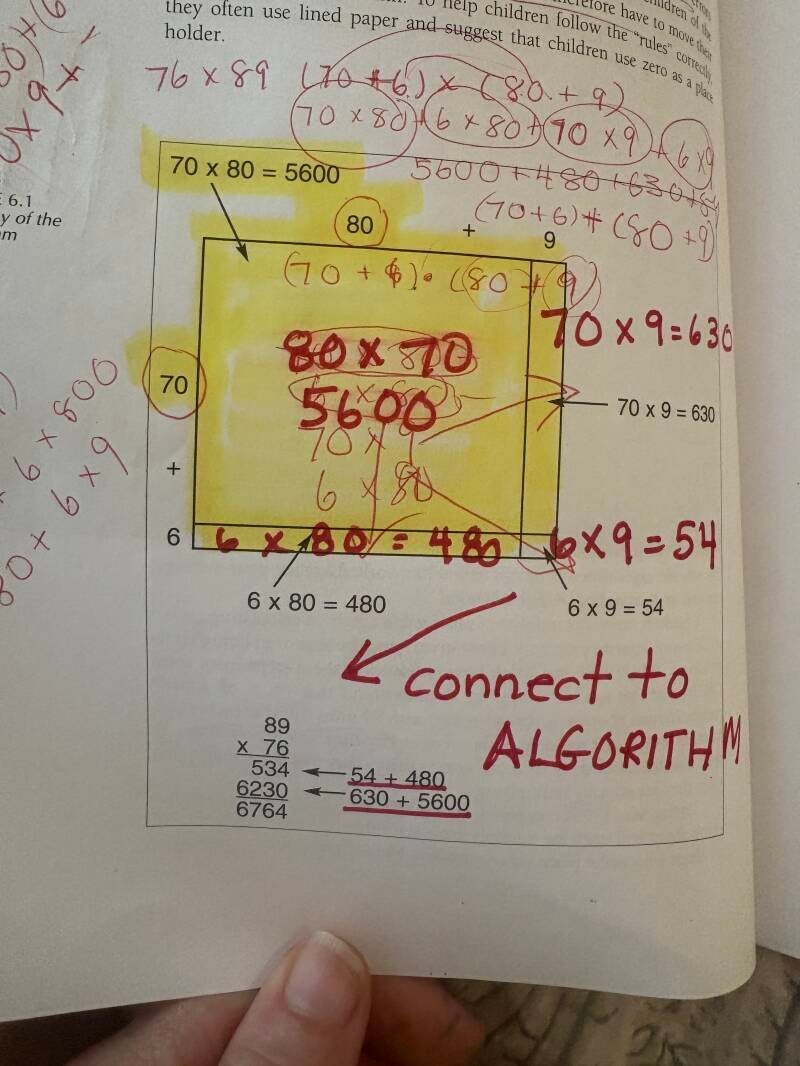 erefore have to move their
they often use lined paper and suggest that children use zero as a place
holder.
76 x 89 (70 + 6) x (80 + 9)
70 x 80 + 6 x 80 + 70 x 9 + 6 x 9
70 x 80 = 5600
5600 + 480 + 630 + 54
6.1
y of the
m
80 + 9
(70+6) + (80+9)
(70 + 6) · (80 + 9)
70 x 9 = 630
80 x 70
70
5600
70 x 9 = 630
70 x 9
x 6 x 800
80 x 6 x 9
+
6 x 80
6
6 x 80 = 480
6 x 9 = 54
6 x 80 = 480
6 x 9 = 54
connect to
ALGORITHM
89
x 76
534 54 + 480
6230 630 + 5600
6764